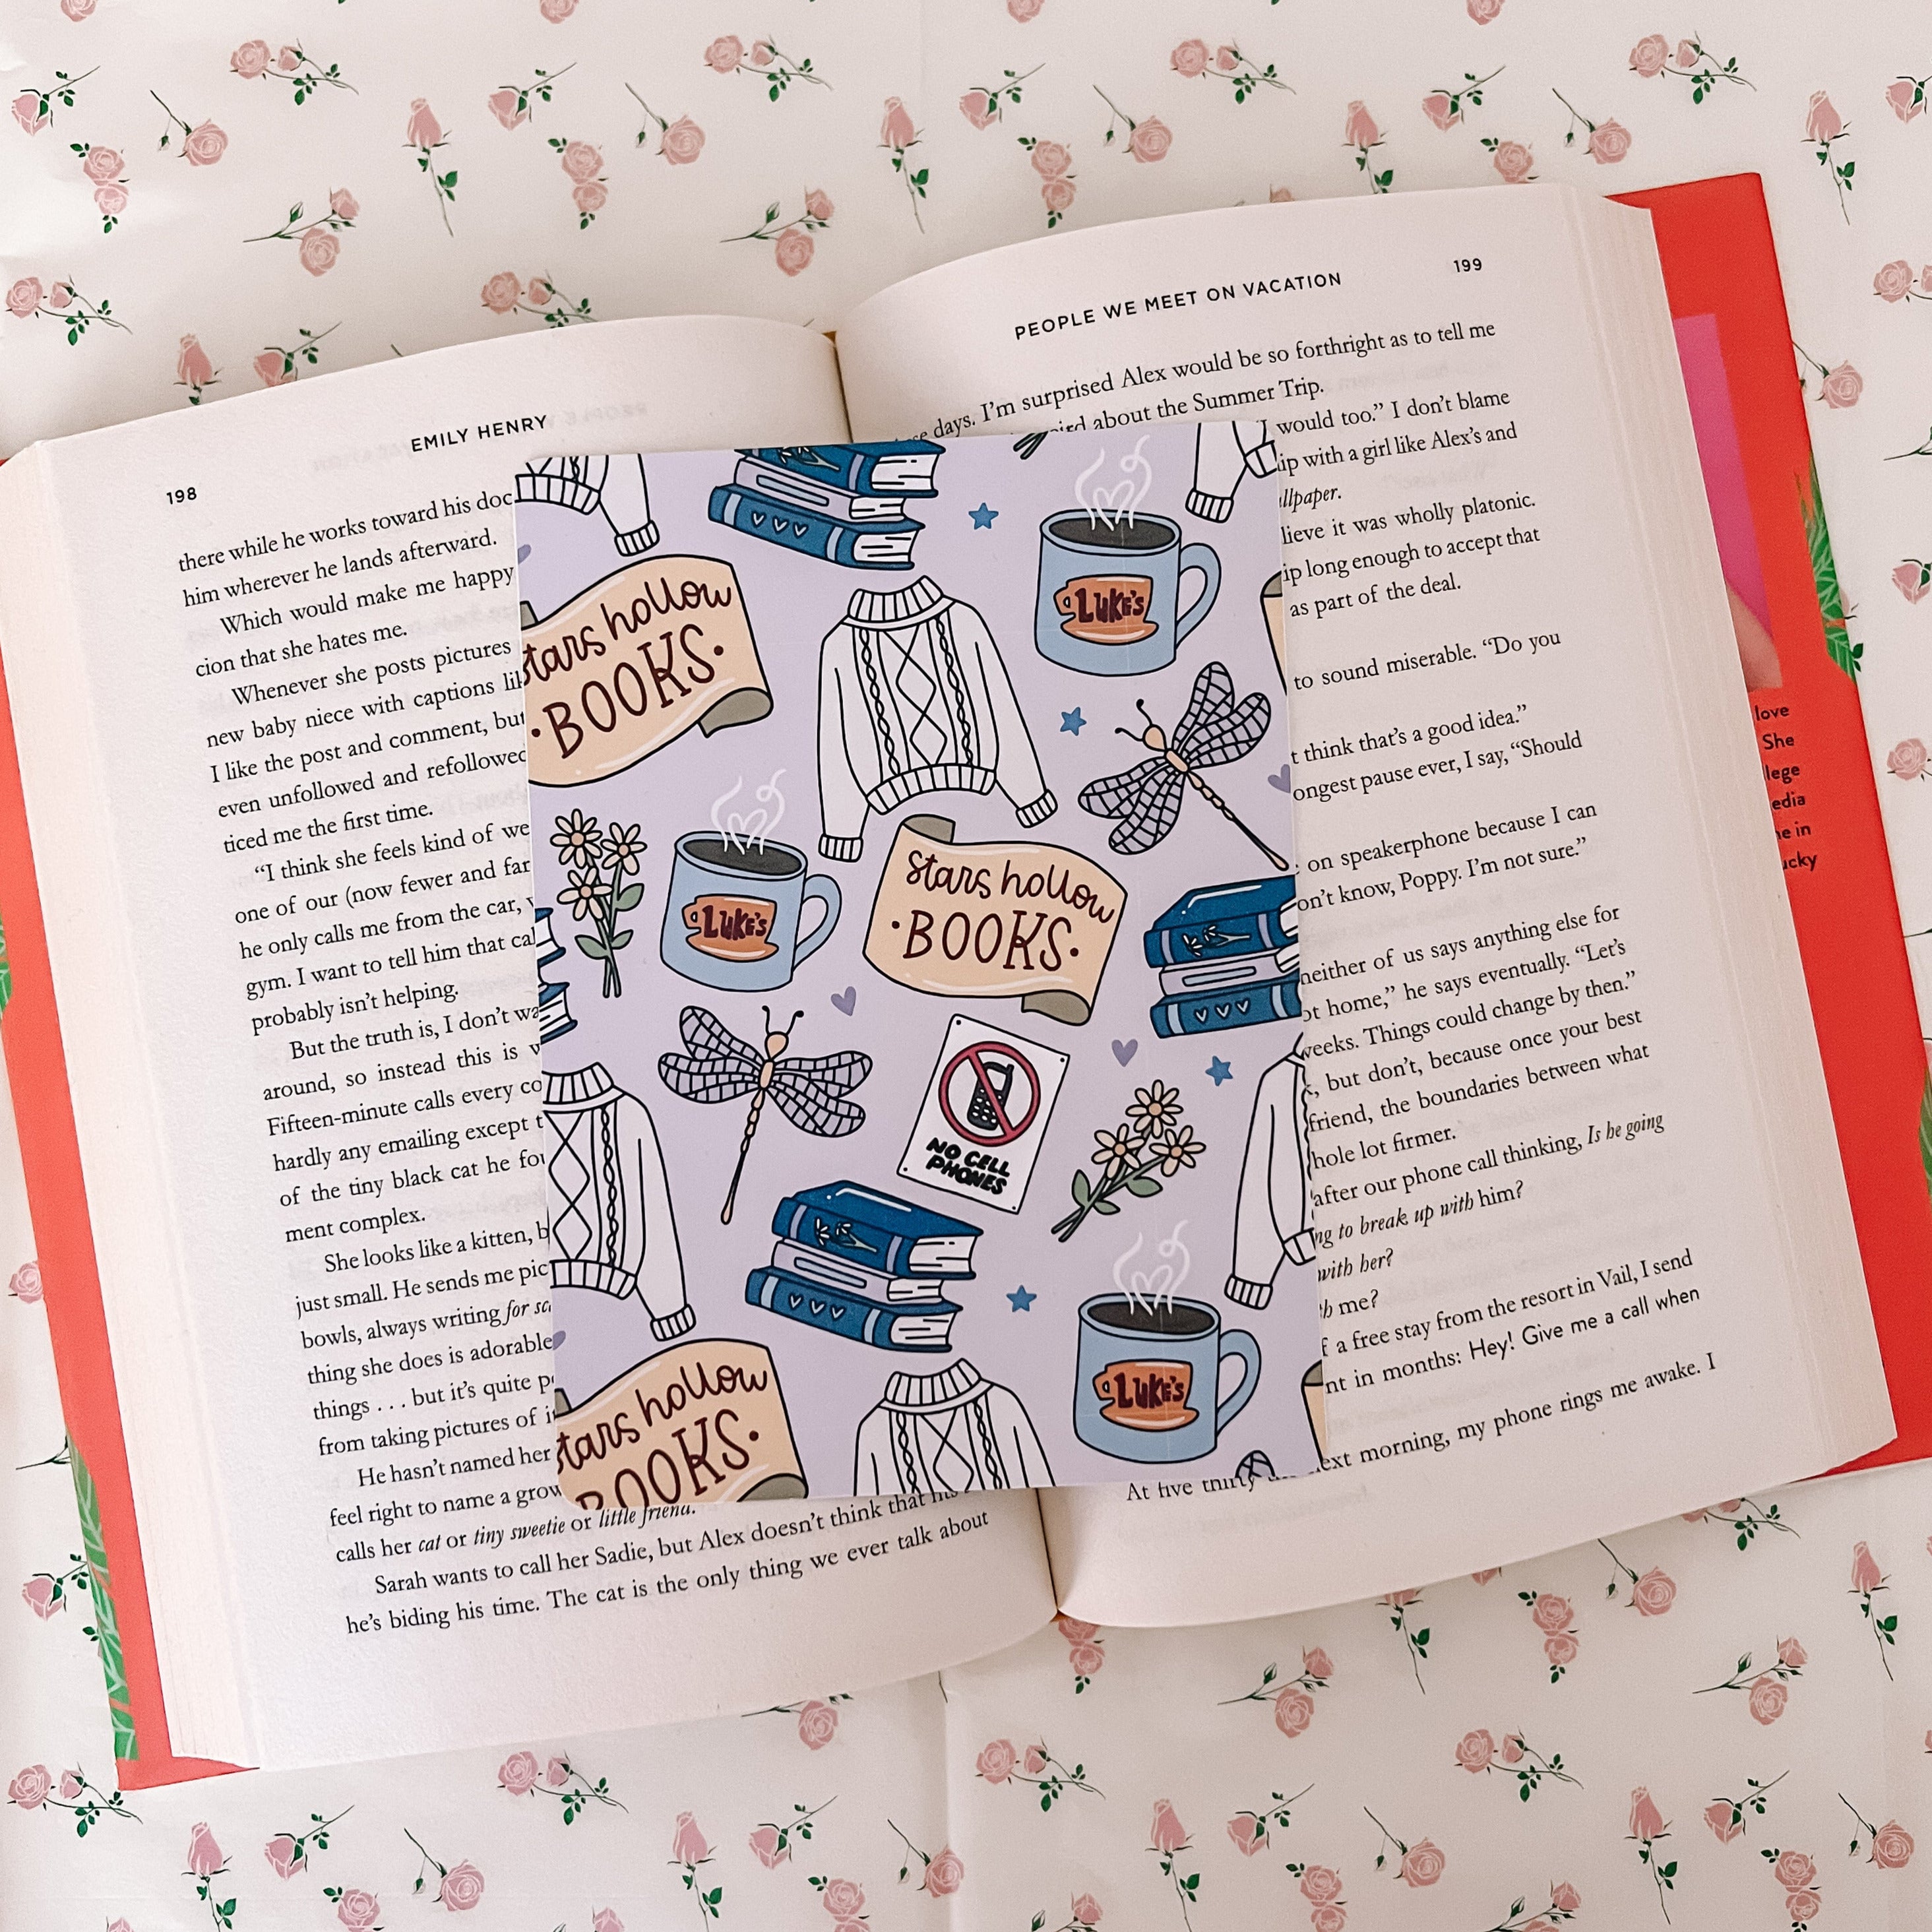 198
EMILY HENRY
there while he works toward his doc
him wherever he lands afterward.
Which would make me happy
cion that she hates me.
Whenever she posts pictures
new baby niece with captions
I like the post and comment, but
even unfollowed and refollowed
ticed me the first time.
“I think she feels kind of we
one of our (now fewer and far
he only calls me from the car,
gym. I want to tell him that cal
probably isn’t helping.
But the truth is, I don’t wa
around, so instead this is
Fifteen-minute calls every co
hardly any emailing except
of the tiny black cat he fou
ment complex.
She looks like a kitten, b
just small. He sends me pic
bowls, always writing for sc
thing she does is adorable
things . . . but it’s quite
from taking pictures of
He hasn’t named her
feel right to name a grow
calls her cat or tiny sweetie or little friend.
Sarah wants to call her Sadie, but Alex doesn’t think that
he’s biding his time. The cat is the only thing we ever talk about
PEOPLE WE MEET ON VACATION
199
days. I’m surprised Alex would be so forthright as to tell me
about the Summer Trip.
I would too.” I don’t blame
ip with a girl like Alex’s and
llpaper.
lieve it was wholly platonic.
ip long enough to accept that
as part of the deal.
to sound miserable. “Do you
t think that’s a good idea.”
ongest pause ever, I say, “Should
on speakerphone because I can
on’t know, Poppy. I’m not sure.”
neither of us says anything else for
ot home,” he says eventually. “Let’s
weeks. Things could change by then.”
, but don’t, because once your best
friend, the boundaries between what
hole lot firmer.
after our phone call thinking, Is he going
ng to break up with him?
with her?
me?
f a free stay from the resort in Vail, I send
nt in months: Hey! Give me a call when
At five thirty next morning, my phone rings me awake. I
stars hollow
•BOOKS•
LUKE'S
LUKE'S
stars hollow
•BOOKS•
NO CELL
PHONES
LUKE'S
stars hollow
BOOKS•
love
She
lege
edia
e in
ucky